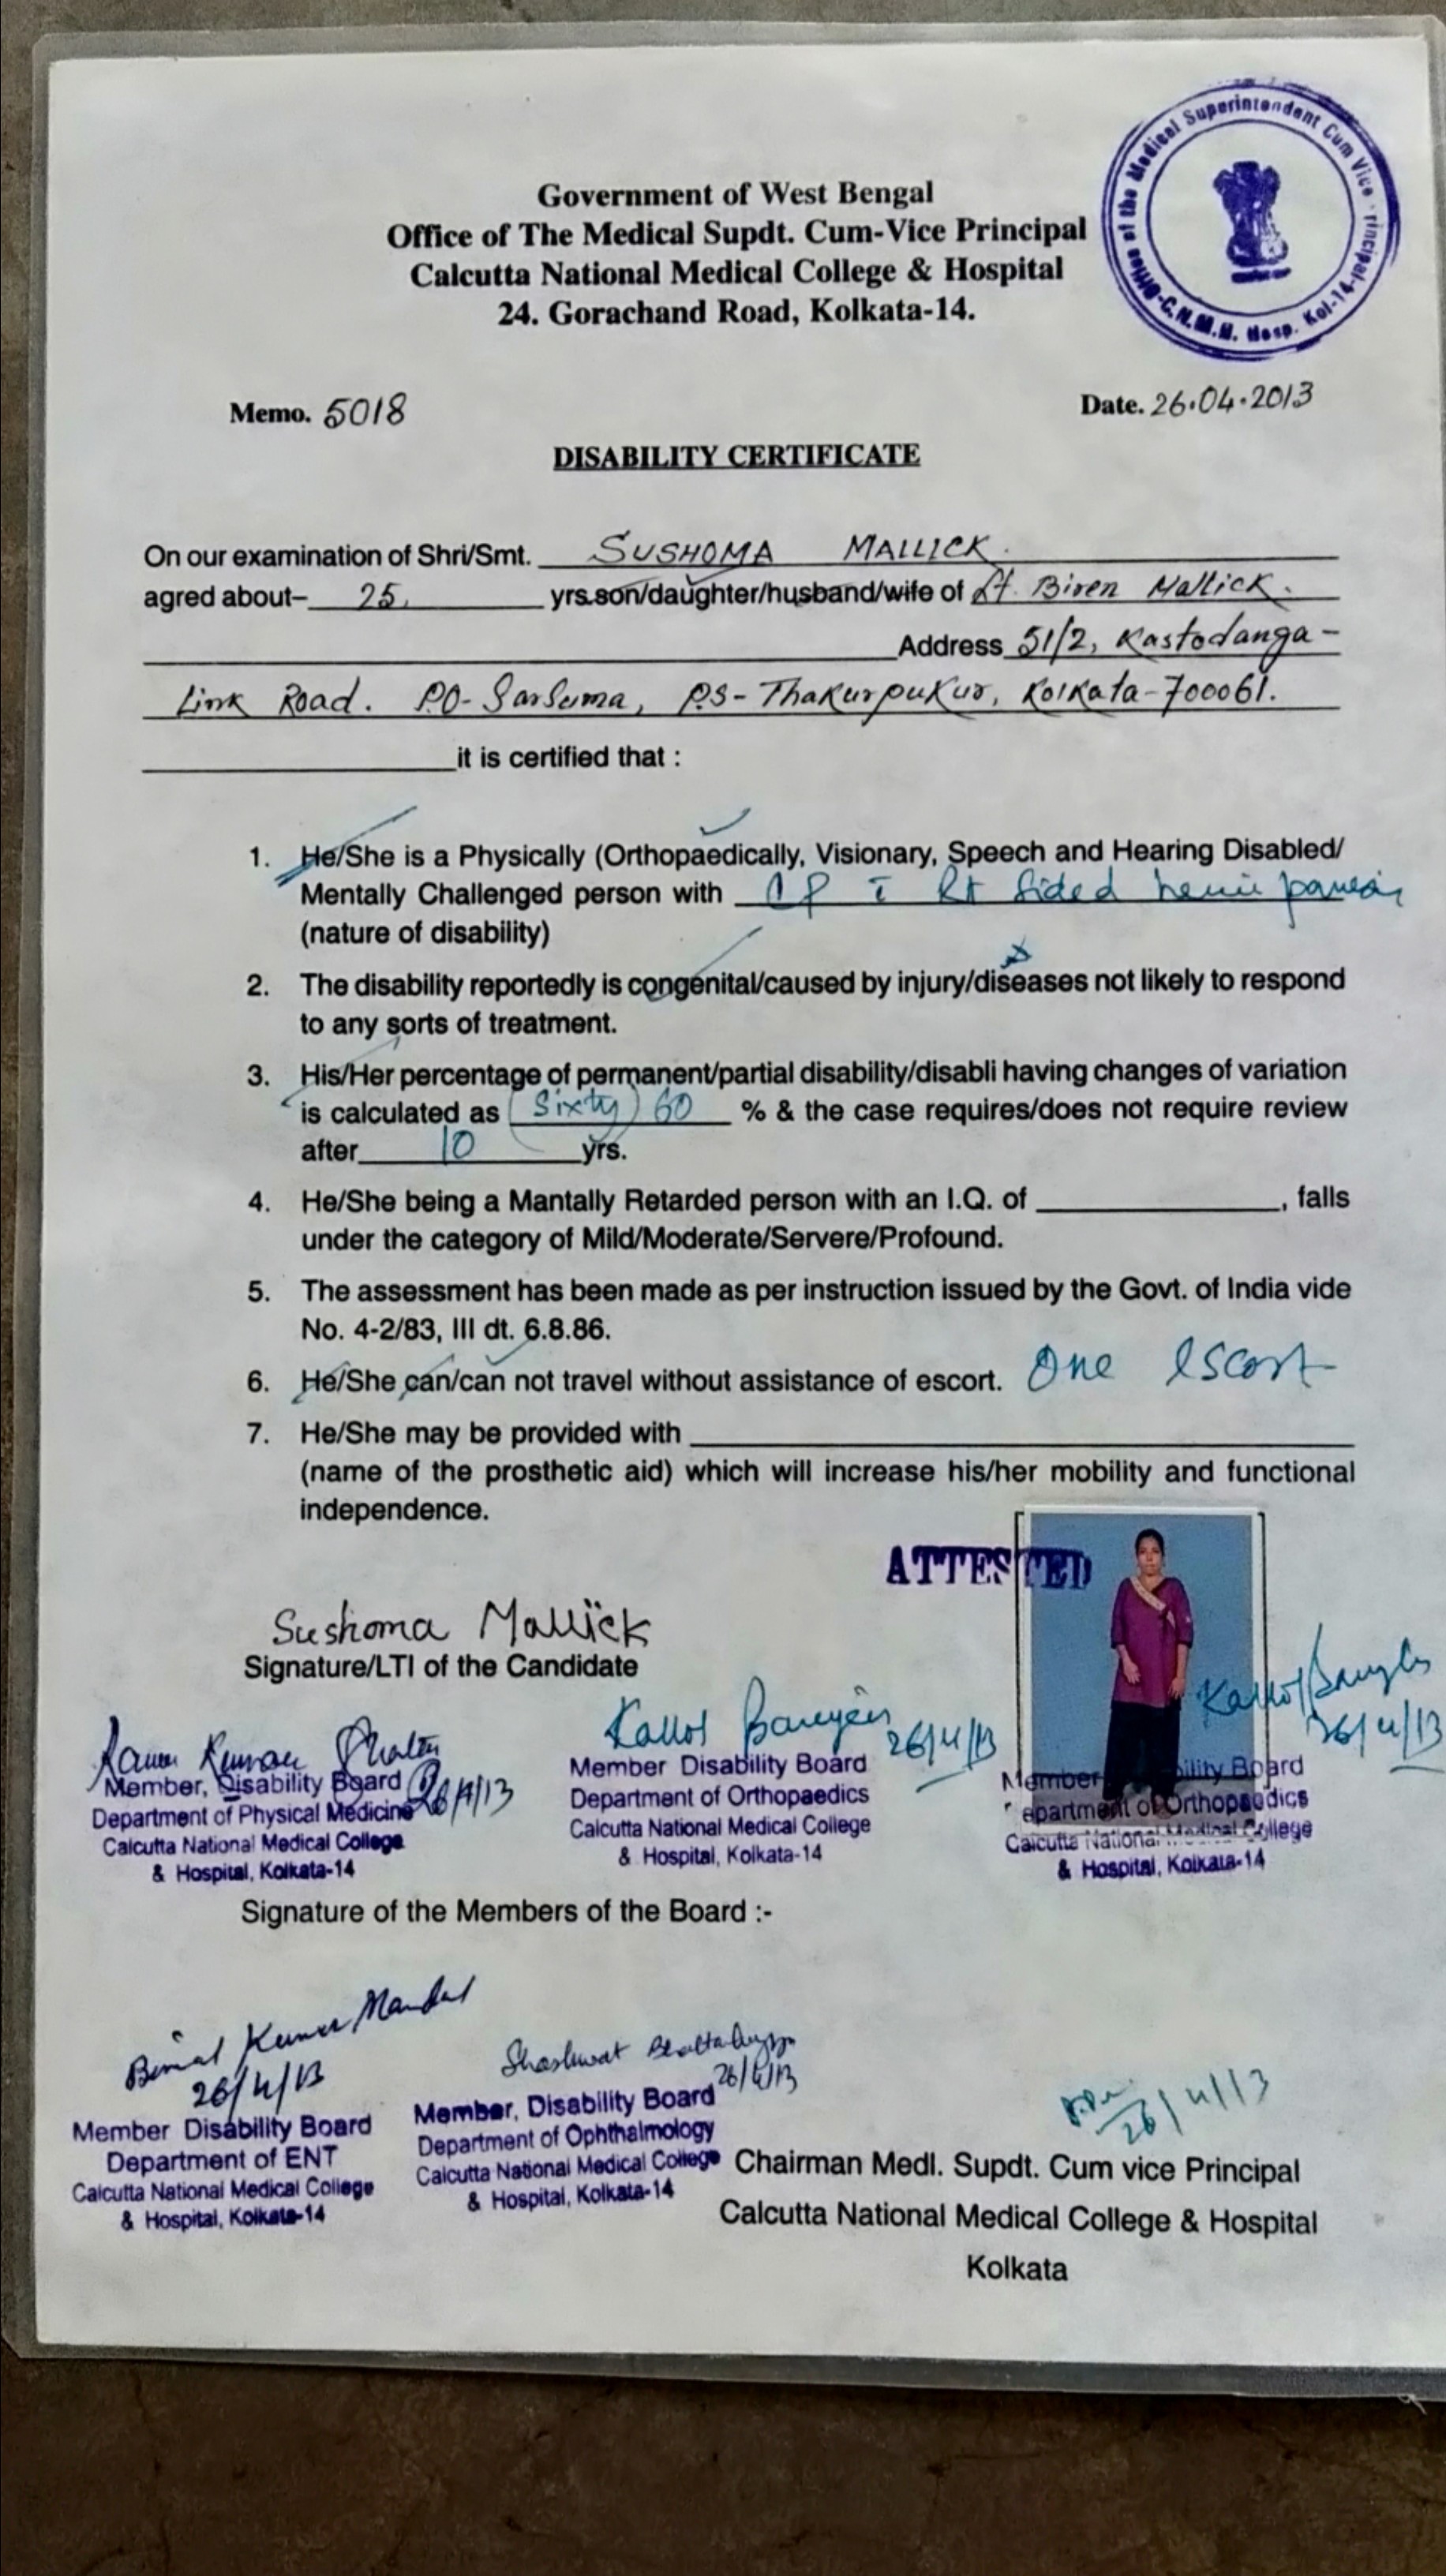 Office of the Medical Superintendent Cum Vice Principal-C.N.M.H. Hosp. Kol-14
Government of West Bengal
Office of The Medical Supdt. Cum-Vice Principal
Calcutta National Medical College & Hospital
24. Gorachand Road, Kolkata-14.
Memo. 5018 Date. 26.04.2013
DISABILITY CERTIFICATE
On our examination of Shri/Smt. SUSHOMA MALLICK.
agred about– 25. yrs.son/daughter/husband/wife of Lt. Biren Mallick.
Address 51/2, Kastodanga -
Link Road. P.O- Sarsuma, P.S- Thakurpukur, Kolkata-700061.
it is certified that :
1. He/She is a Physically (Orthopaedically, Visionary, Speech and Hearing Disabled/
Mentally Challenged person with CP c̄ Rt sided hemiparesis
(nature of disability)
2. The disability reportedly is congenital/caused by injury/diseases not likely to respond
to any sorts of treatment.
3. His/Her percentage of permanent/partial disability/disabli having changes of variation
is calculated as (Sixty) 60 % & the case requires/does not require review
after 10 yrs.
4. He/She being a Mantally Retarded person with an I.Q. of , falls
under the category of Mild/Moderate/Servere/Profound.
5. The assessment has been made as per instruction issued by the Govt. of India vide
No. 4-2/83, III dt. 6.8.86.
6. He/She can/can not travel without assistance of escort. One escort
7. He/She may be provided with
(name of the prosthetic aid) which will increase his/her mobility and functional
independence.
ATTESTED
Sushoma Mallick
Signature/LTI of the Candidate
Kumar 26/4/13
Member, Disability Board
Department of Physical Medicine
Calcutta National Medical College
& Hospital, Kolkata-14
26/4/13
Member Disability Board
Department of Orthopaedics
Calcutta National Medical College
& Hospital, Kolkata-14
26/4/13
Member Disability Board
Department of Orthopaedics
Calcutta National Medical College
& Hospital, Kolkata-14
Signature of the Members of the Board :-
Bimal Kumar Mandal
26/4/13
Member Disability Board
Department of ENT
Calcutta National Medical College
& Hospital, Kolkata-14
Shashwat
26/4/13
Member, Disability Board
Department of Ophthalmology
Calcutta National Medical College
& Hospital, Kolkata-14
26/4/13
Chairman Medl. Supdt. Cum vice Principal
Calcutta National Medical College & Hospital
Kolkata